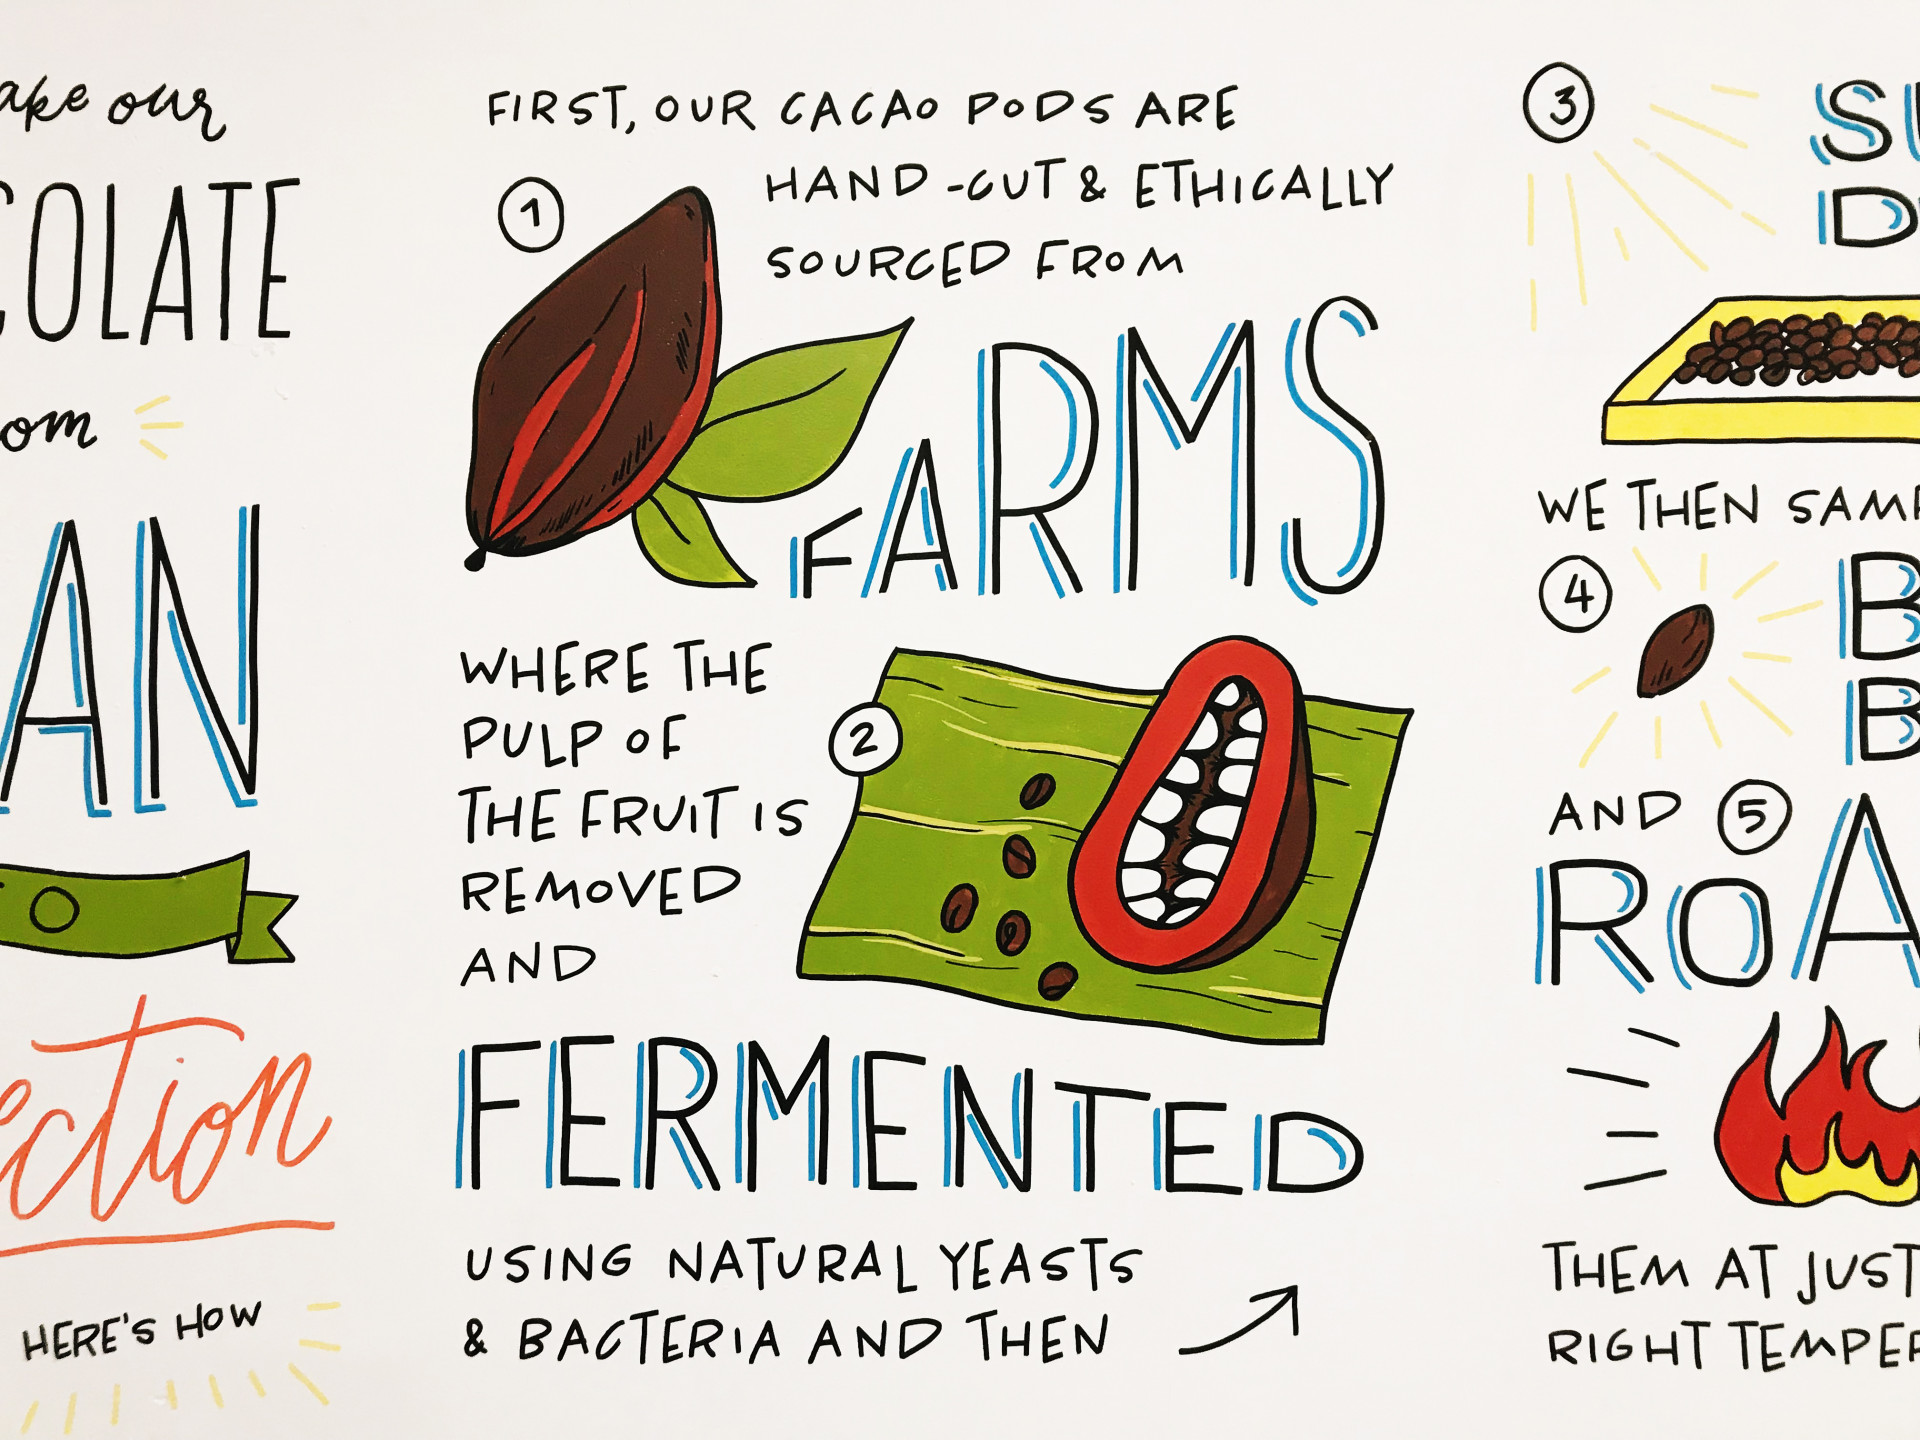 our
HERE'S HOW
FIRST, OUR CACAO PODS ARE
1
HAND-CUT & ETHICALLY
SOURCED FROM
FARMS
WHERE THE
PULP OF
2
THE FRUIT IS
REMOVED
AND
FERMENTED
USING NATURAL YEASTS
& BACTERIA AND THEN
3
WE THEN
4
AND 5
THEM AT JUST
RIGHT